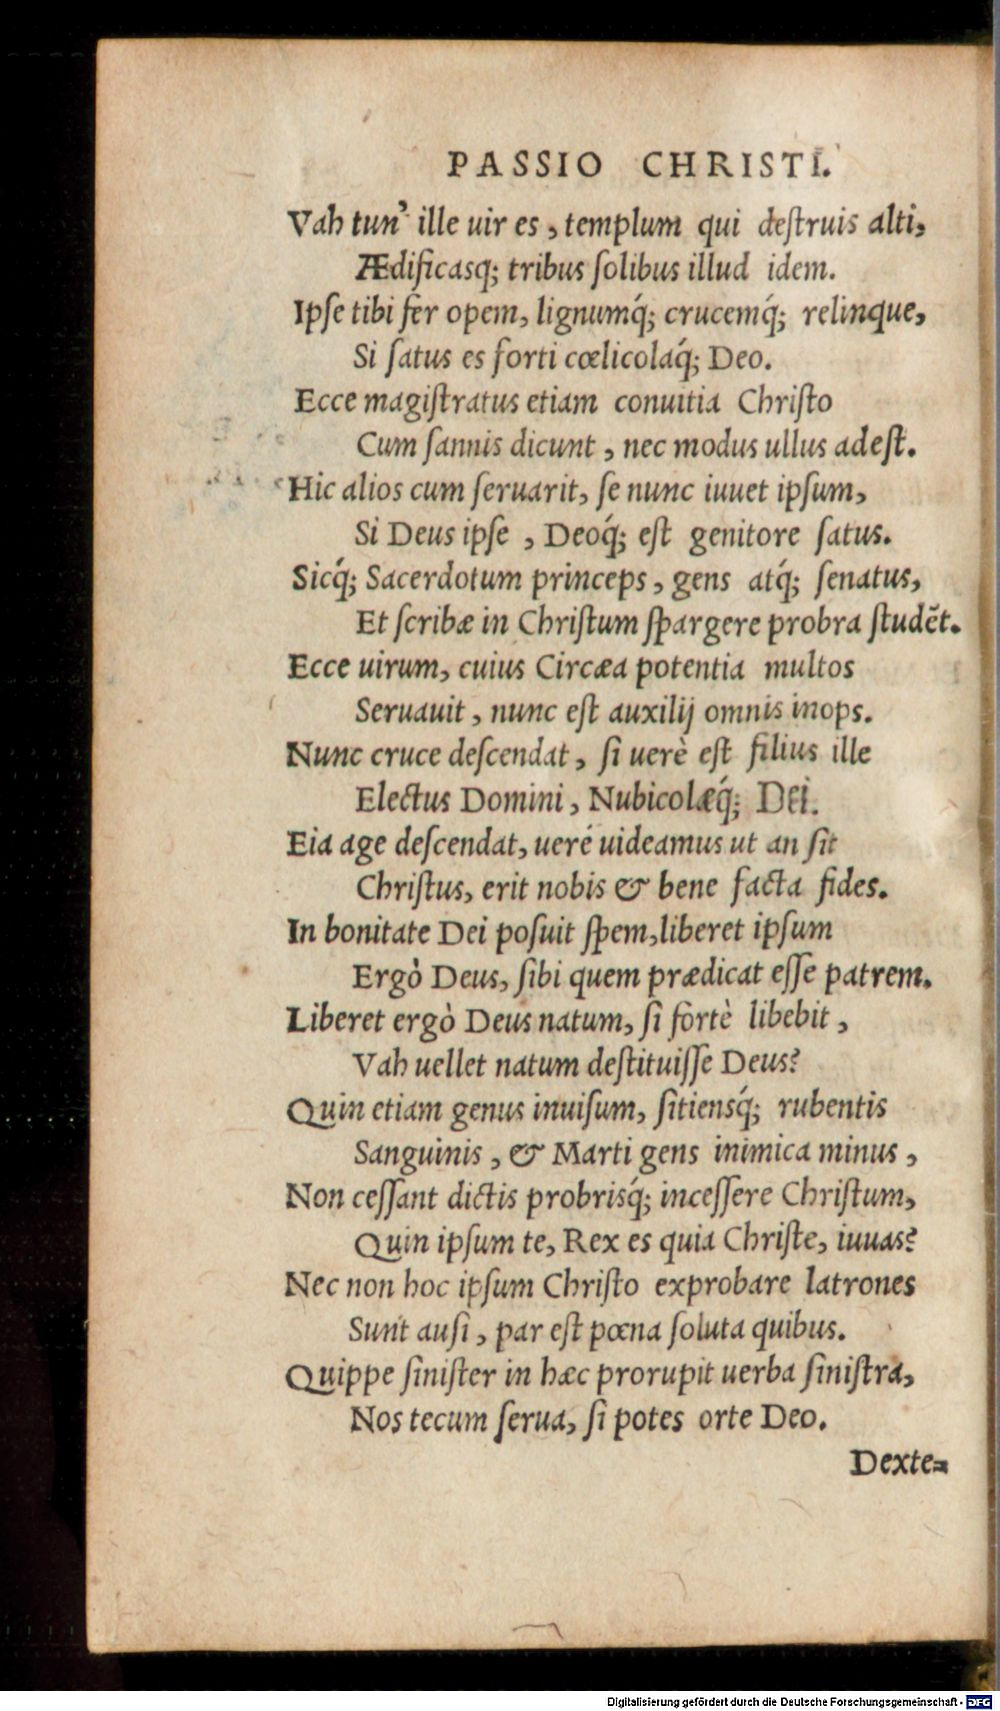 PASSIO CHRISTI.
Vah tun' ille uir es, templum qui deſtruis alti,
Ædificasq; tribus ſolibus illud idem.
Ipſe tibi fer opem, lignumq́; crucemq́; relinque,
Si ſatus es forti cœlicolaq́; Deo.
Ecce magiſtratus etiam conuitia Chriſto
Cum ſannis dicunt, nec modus ullus adeſt.
Hic alios cum ſeruarit, ſe nunc iuuet ipſum,
Si Deus ipſe, Deoq́; eſt genitore ſatus.
Sicq́; Sacerdotum princeps, gens atq́; ſenatus,
Et ſcribæ in Chriſtum ſpargere probra ſtudẽt.
Ecce uirum, cuius Circæa potentia multos
Seruauit, nunc eſt auxilij omnis inops.
Nunc cruce deſcendat, ſi uerè eſt filius ille
Electus Domini, Nubicolæq́; Dei.
Eia age deſcendat, ueré uideamus ut an ſit
Chriſtus, erit nobis & bene facta fides.
In bonitate Dei poſuit ſpem, liberet ipſum
Ergò Deus, ſibi quem prædicat eſſe patrem.
Liberet ergò Deus natum, ſi fortè libebit,
Vah uellet natum deſtituiſſe Deus?
Quin etiam genus inuiſum, ſitiensq́; rubentis
Sanguinis, & Marti gens inimica minus,
Non ceſſant dictis probrisq́; inceſſere Chriſtum,
Quin ipſum te, Rex es quia Chriſte, iuuas?
Nec non hoc ipſum Chriſto exprobare latrones
Sunt auſi, par eſt pœna ſoluta quibus.
Quippe ſiniſter in hæc prorupit uerba ſiniſtra,
Nos tecum ſerua, ſi potes orte Deo.
Dexte-
Digitalisierung gefördert durch die Deutsche Forschungsgemeinschaft - DFG